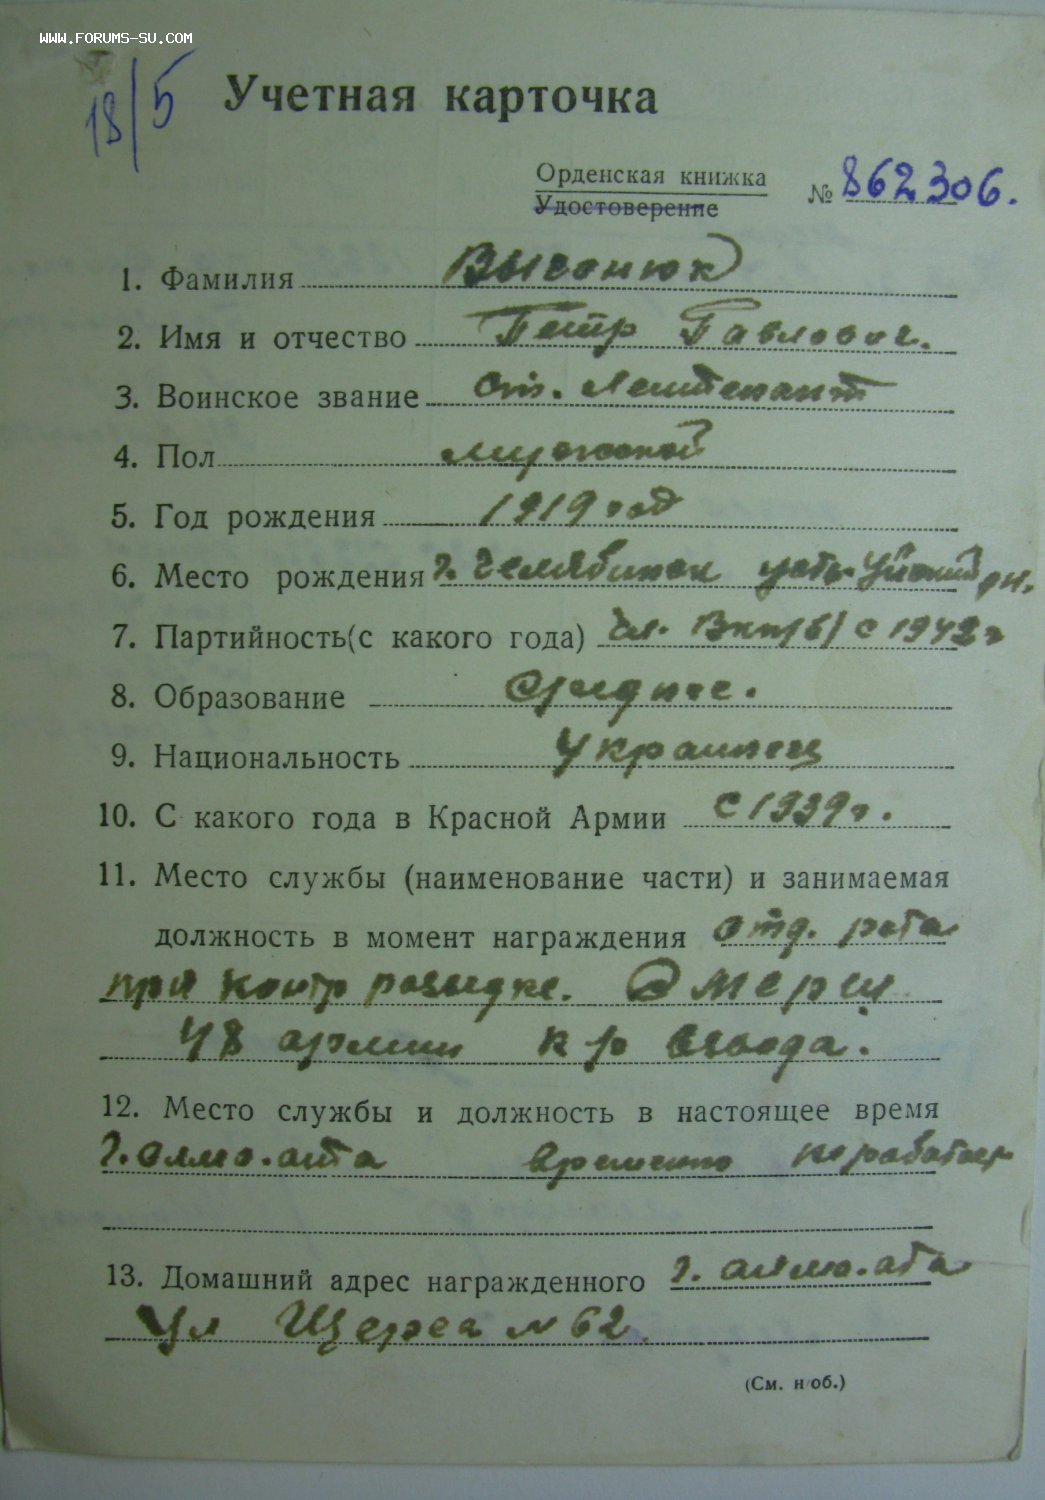 WWW.FORUMS-SU.COM
18/5
Учетная карточка
Орденская книжка
Удостоверение
№ 862306.
1. Фамилия Высонюк
2. Имя и отчество Петр Павлович.
3. Воинское звание Ст. Лейтенант
4. Пол мужской
5. Год рождения 1919 год
6. Место рождения г. Челябинск усть-Уйский рн.
7. Партийность(с какого года) Чл. Вкп/б/ с 1942 г
8. Образование Среднее.
9. Национальность Украинец
10. С какого года в Красной Армии с 1939 г.
11. Место службы (наименование части) и занимаемая
должность в момент награждения отд. рота
при контр розведке. Смерш
48 армии к-р взвода.
12. Место службы и должность в настоящее время
г. Алма-ата временно не работает
13. Домашний адрес награжденного г. алма-ата
Ул № 62.
(См. н/об.)